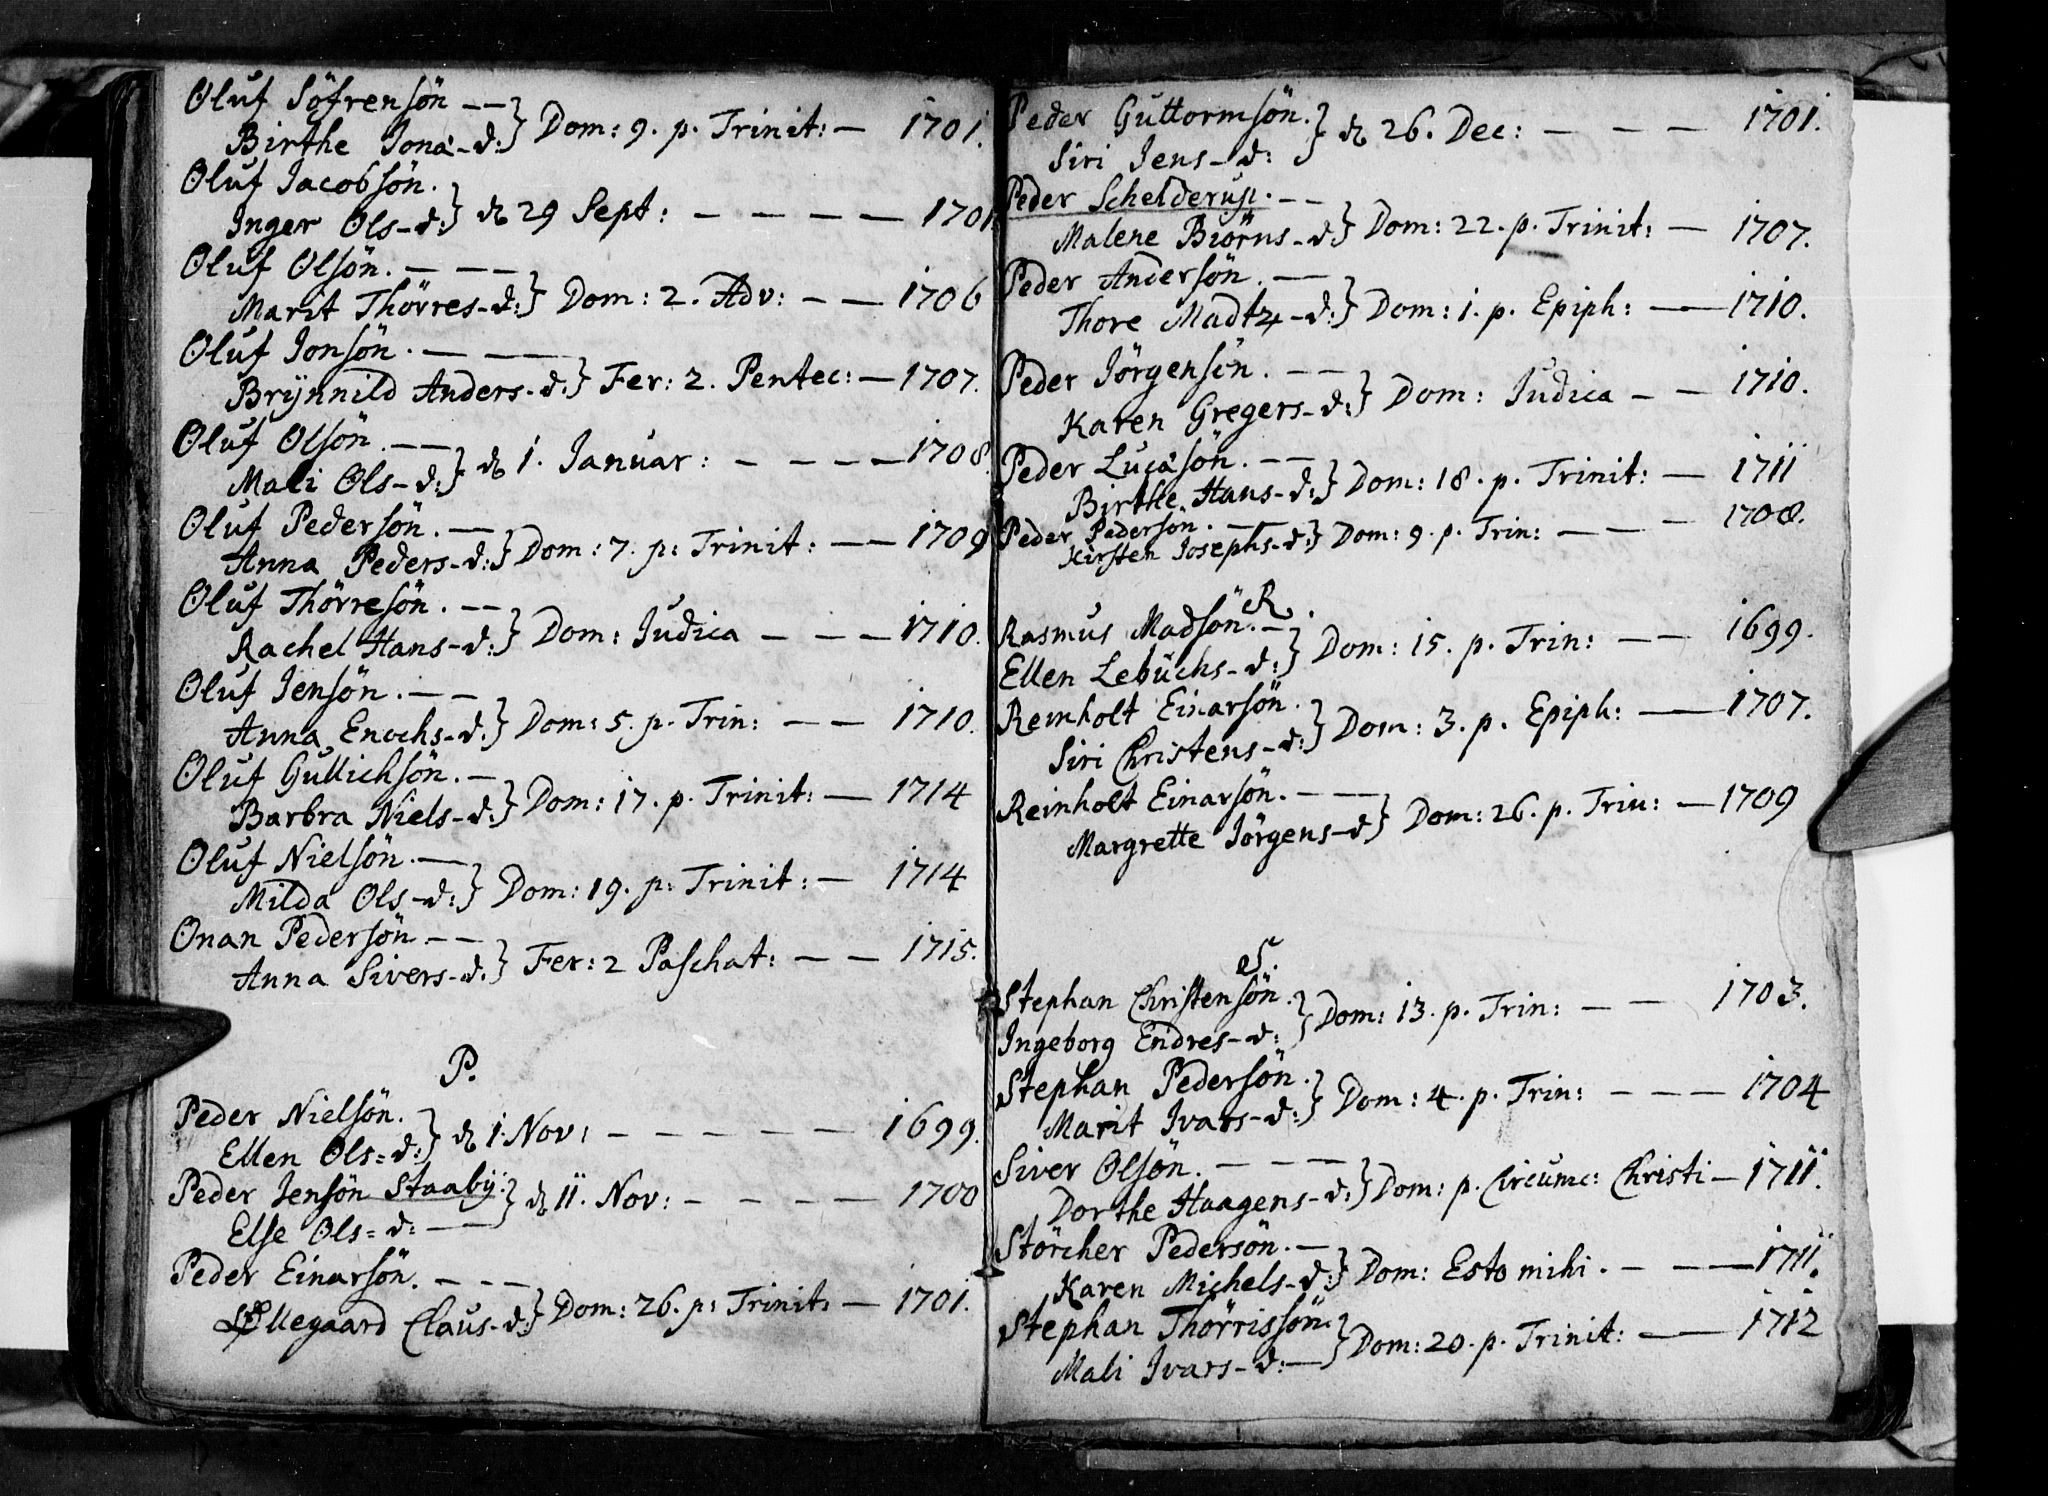 Oluf Söfrensön -- } Dom: 9. p. Trinit: - 1701.
Birthe Jona-d:
Oluf Jacobsön. } d 29 Sept: - - - - 1701.
Inger Ols-d:
Oluf Olsön. - - - } Dom: 2. Adv: - - 1706
Marit Thörres-d:
Oluf Jonsön. - - } Fer: 2. Pentec: - 1707.
Brÿnnild Anders-d:
Oluf Olsön. - - } d 1. Januar: - - - - 1708.
Mali Ols-d:
Oluf Pedersön. - } Dom: 7. p: Trinit: - - 1709
Anna Peders-d:
Oluf Thörresön. -- } Dom: Judica - - - 1710.
Rachel Hans-d:
Oluf Jensön. - - } Dom: 5. p. Trin: - - 1710.
Anna Enochs-d:
Oluf Gullichsön. - } Dom: 17. p. Trinit: - 1714
Barbra Niels-d:
Oluf Nielsön. - } Dom: 19. p: Trinit: - 1714
Milda Ols-d:
Onan Pedersön - - } Fer: 2 Paschat: - - 1715.
Anna Sivers-d.
P.
Peder Nielsön. } d 1. Nov: - - - - - - 1699.
Ellen Ols=d:
Peder Jensön Staabÿ. } d 11. Nov: - - - - 1700
Else Ols=d: -
Peder Einarsön. - - - } Dom: 26. p: Trinit: - 1701.
Claus-d:
Peder Guttormsön. } d 26. Dec: - - - 1701.
Siri Jens-d:
Peder Schelderup. -- } Dom: 22. p. Trinit: - 1707.
Malene Biörns-d:
Peder Andersön. - - } Dom: 1. p. Epiph: - 1710.
Thore Madtz-d:
Peder Jörgensön. - - } Dom: Judica - - 1710.
Karen Gregers-d:
Peder Lucasön. - - } Dom: 18. p. Trinit: - 1711
Birthe Hans-d:
Peder Pedersön. - - } Dom: 9. p. Trin: - - - 1708.
Kirsten Josephs-d:
R.
Rasmus Madsön. - } Dom: 15. p. Trin: - - 1699.
Ellen Lebüchs-d:
Reinholt Einarsön. } Dom: 3. p. Epiph: - 1707.
Siri Christens-d:
Reinholt Einarsön. - - } Dom: 26. p. Trin: - 1709
Margrette Jörgens-d
S.
Stephan Christensön. } Dom: 13. p. Trin: - - 1703.
Ingeborg Endres-d:
Stephan Pedersön. } Dom: 4. p. Trin: - - - 1704
Marit Ivars-d:
Siver Olsön. - - - } Dom: p. Circumc: Christi - 1711.
Dorthe Haagens-d:
Störcher Pedersön. - } Dom: Esto mihi. - - - 1711.
Karen Michels-d:
Stephan Thörrissön. } Dom: 20. p. Trinit: - - 1712
Mali Ivars-d: -